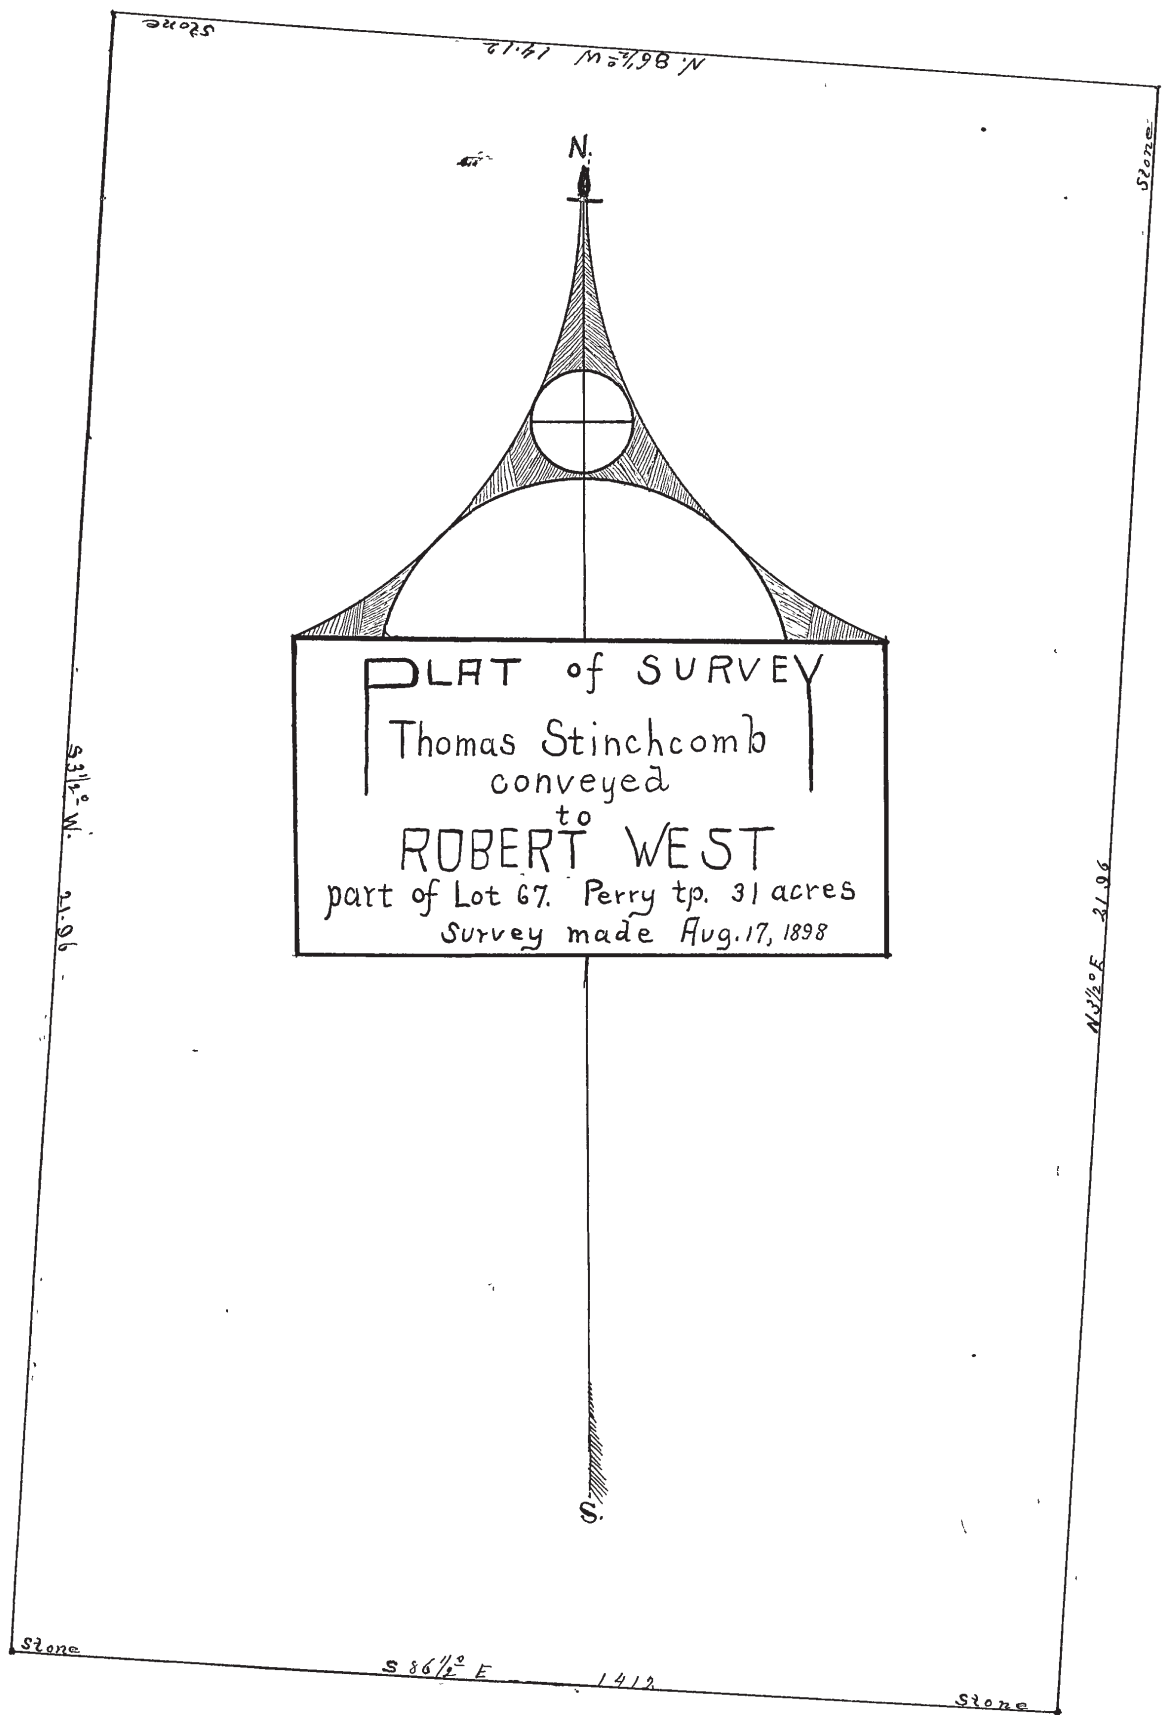 Stone
N. 86 1/2° W 14.12
Stone
N.
PLAT of SURVEY
Thomas Stinchcomb
conveyed
to
ROBERT WEST
part of Lot 67. Perry tp. 31 acres
Survey made Aug. 17, 1898
S 3 1/2° W. 21.96
N 3 1/2° E 21.96
S.
Stone
S 86 1/2° E 1412
Stone